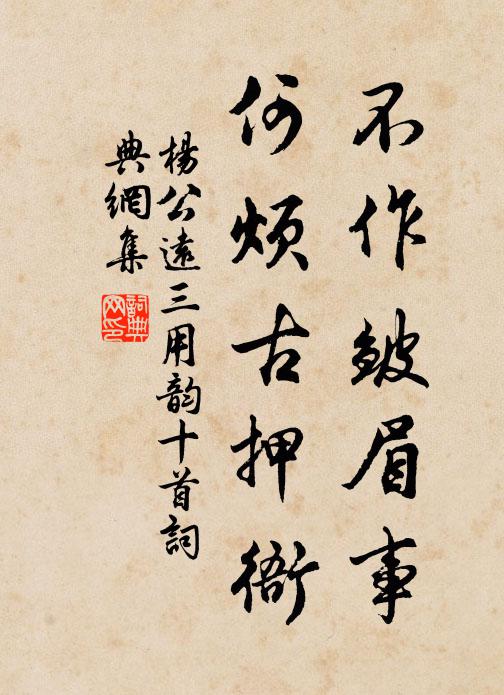 不作皺眉事
何煩古押衙
楊公遠三用韵十首詞
典網集
詞典
网印